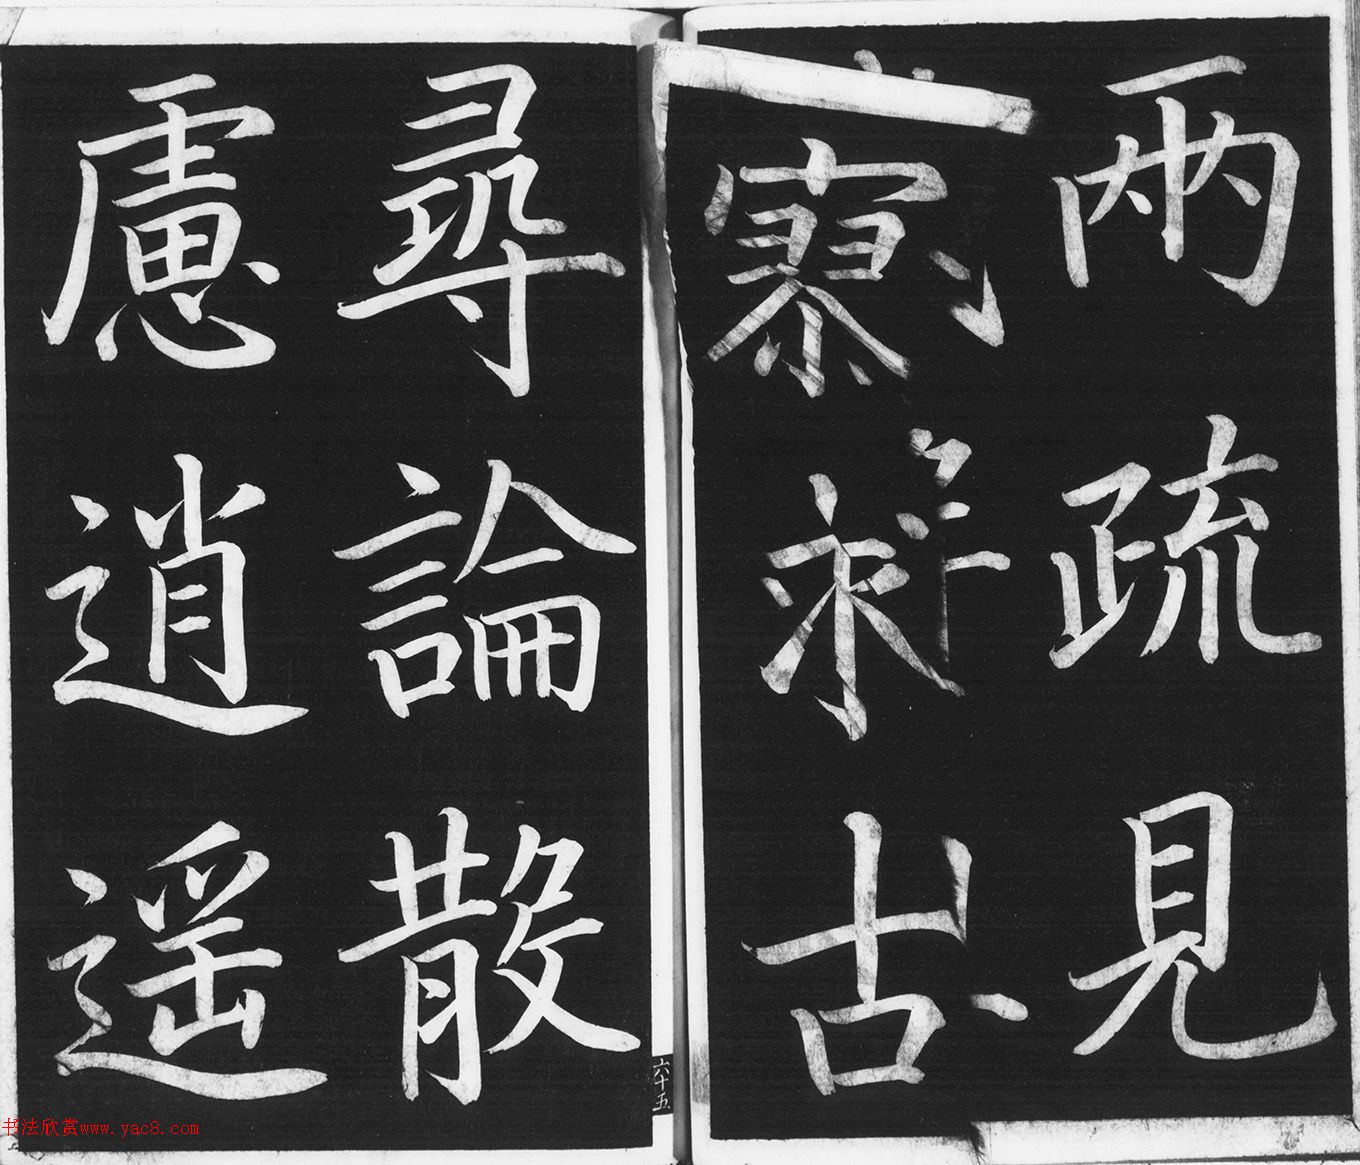 兩疏見
寥求古
尋論散
慮逍遙
六十五
书法欣赏www.yac8.com